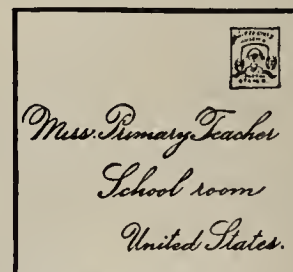 Miss. Primary Teacher
School room
United States.